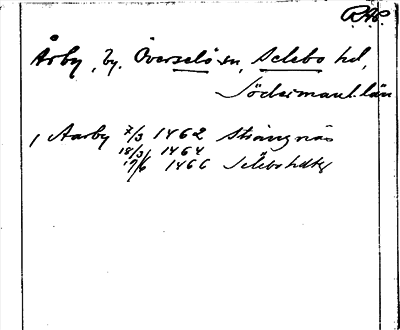 R.A.P.
Årby, by, Överselö sn, Selebo hd,
Södermanl. län
, Aarby 7/3 1462 Strängnäs
18/3 1464
17/6 1466 Selebo hdtg